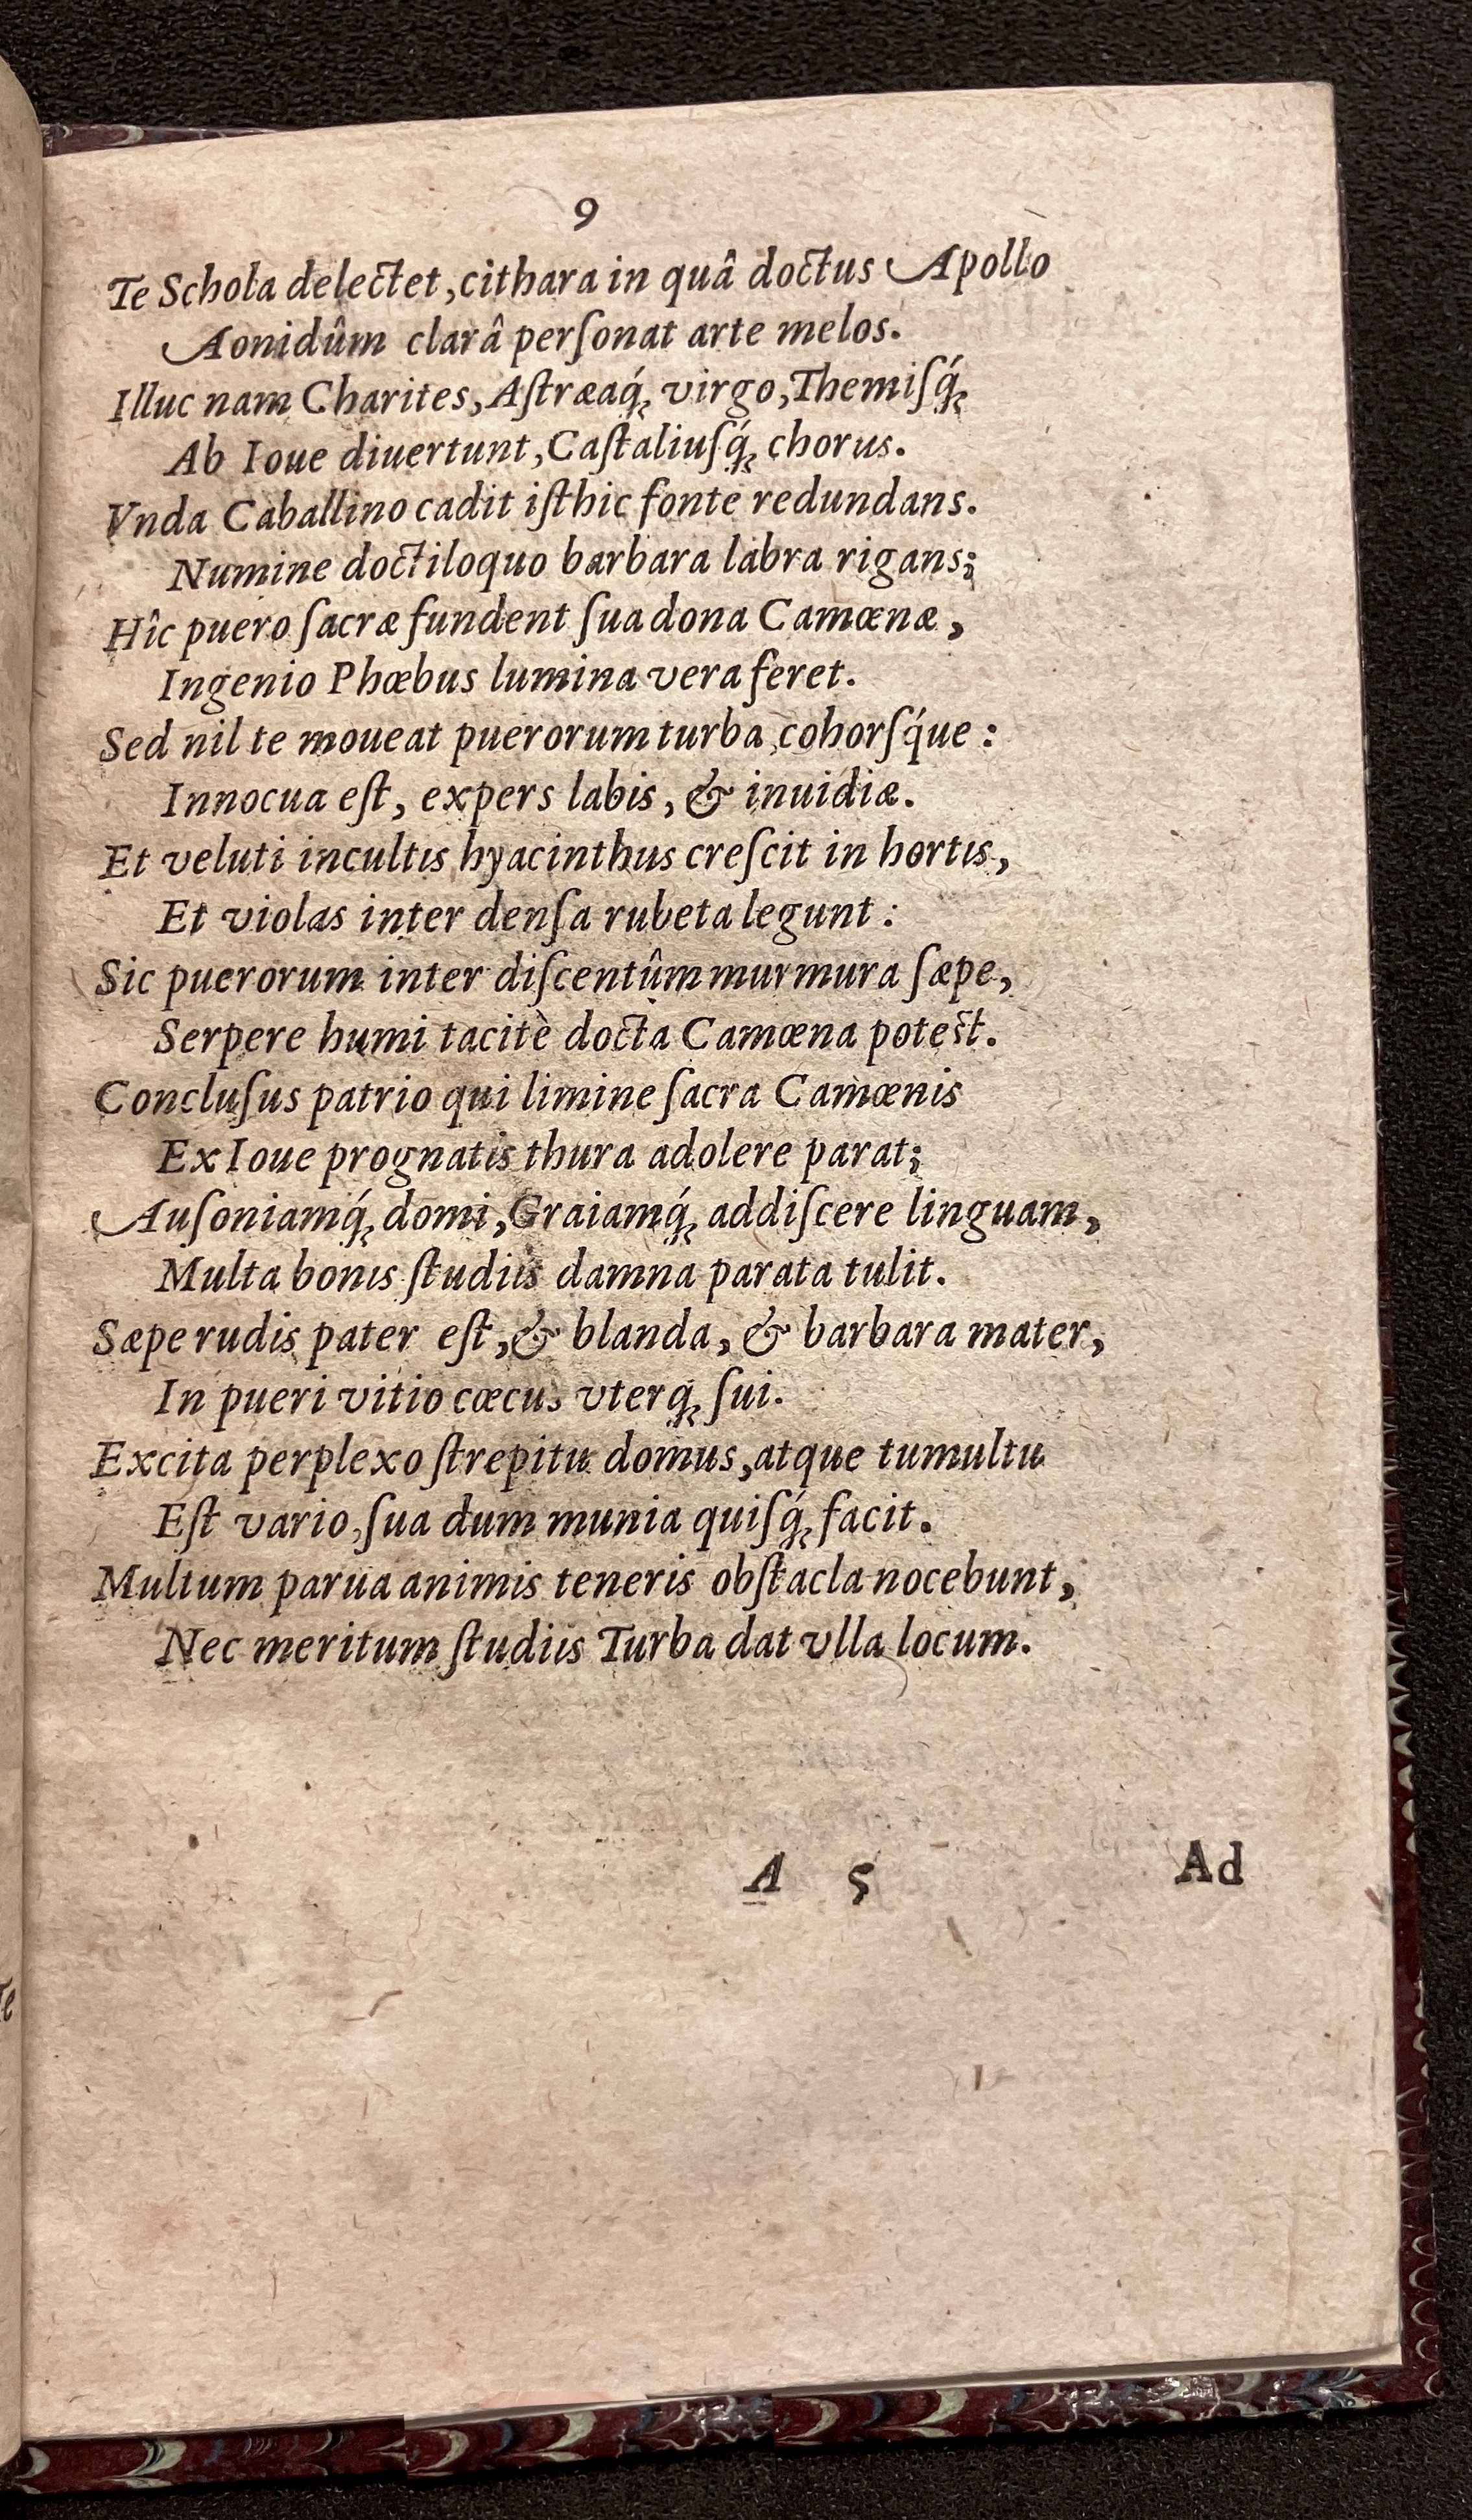 9
Te Schola delectet, cithara in quâ doctus Apollo
Aonidûm clarâ perſonat arte melos.
Illuc nam Charites, Aſtræaq́ꝫ virgo, Themiſq́ꝫ
Ab Ioue diuertunt, Caſtaliuſq́ꝫ chorus.
Vnda Caballino cadit iſthic fonte redundans.
Numine doctiloquo barbara labra rigans;
Hîc puero ſacræ fundent ſua dona Camœnæ,
Ingenio Phœbus lumina vera feret.
Sed nil te moueat puerorum turba, cohorſq́ue:
Innocua eſt, expers labis, & inuidiæ.
Et veluti incultis hyacinthus creſcit in hortis,
Et violas inter denſa rubeta legunt:
Sic puerorum inter diſcentûm murmura ſæpe,
Serpere humi tacitè docta Camœna poteſt.
Concluſus patrio qui limine ſacra Camœnis
Ex Ioue prognatis thura adolere parat;
Auſoniamq́ꝫ domi, Graiamq́ꝫ addiſcere linguam,
Multa bonis ſtudiis damna parata tulit.
Sæpe rudis pater eſt, & blanda, & barbara mater,
In pueri vitio cœcus vterq́ꝫ ſui.
Excita perplexo ſtrepitu domus, atque tumultu
Eſt vario, ſua dum munia quiſq́ꝫ facit.
Multum parua animis teneris obſtacla nocebunt,
Nec meritum ſtudiis Turba dat vlla locum.
A 5 Ad
Te